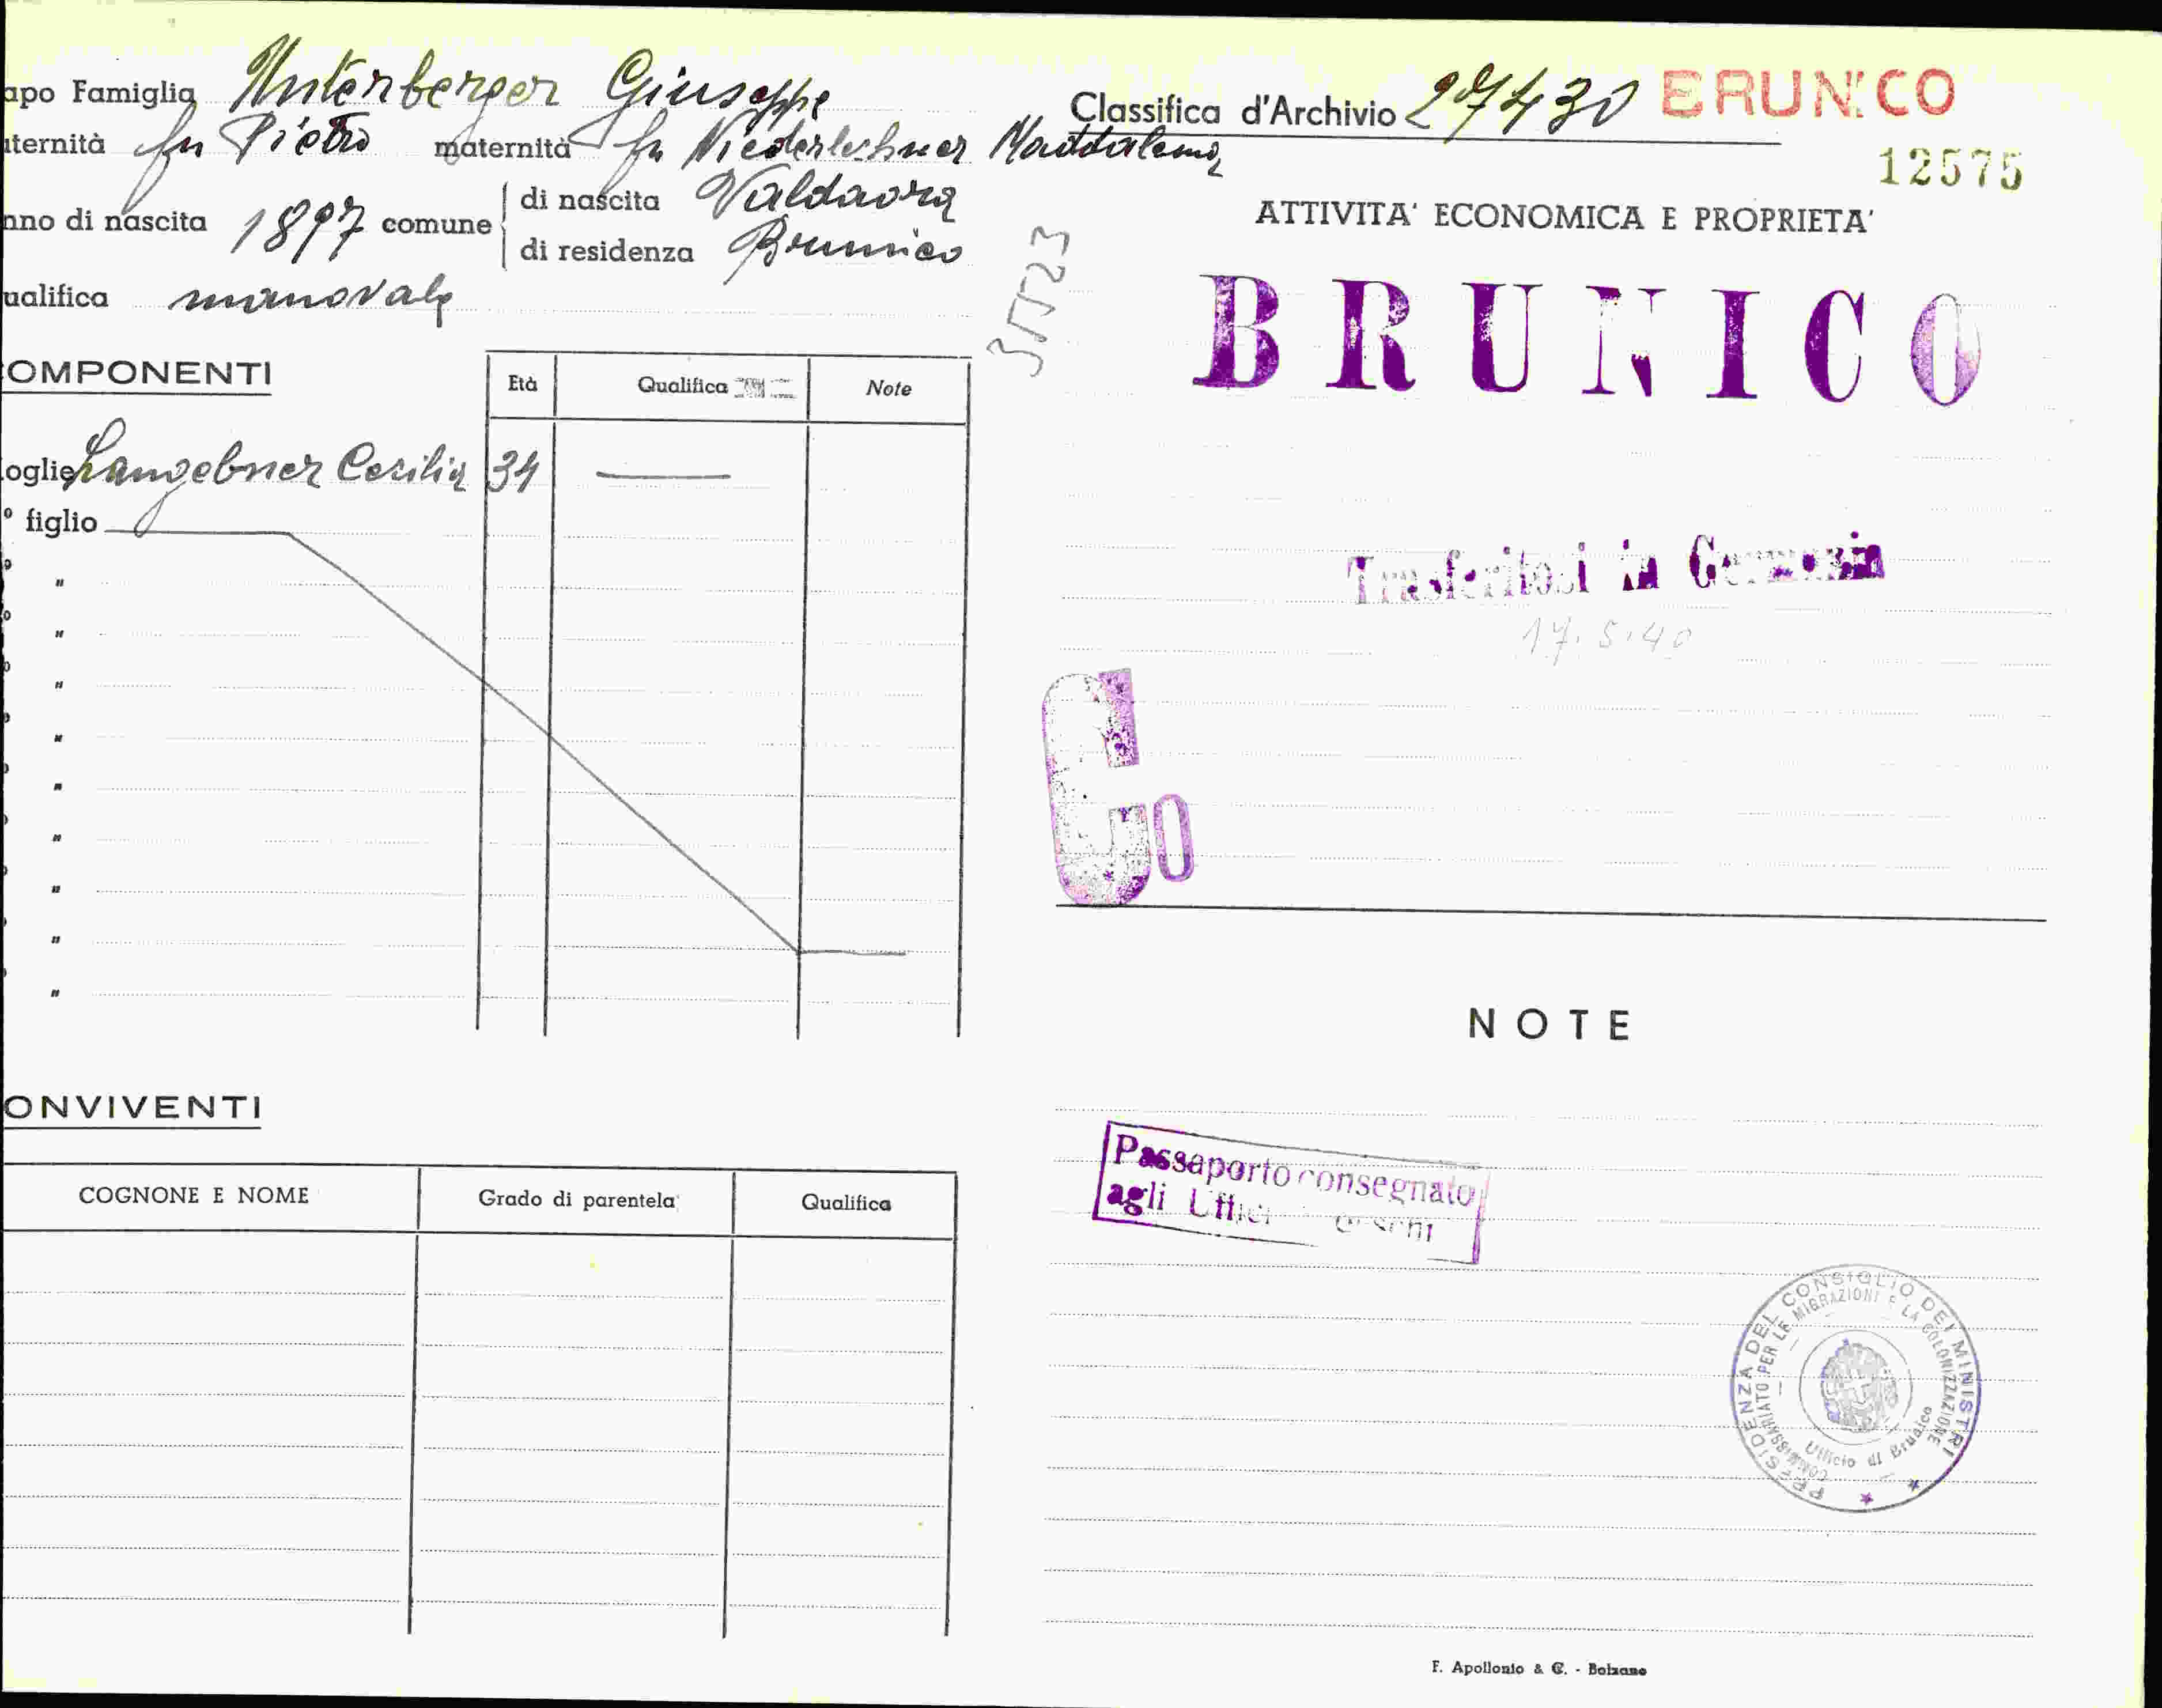 apo Famiglia Unterberger Giuseppe
Classifica d'Archivio 27430 BRUNICO
12575
ternità fu Pietro maternità fu Niederlechner Maddalena
nno di nascita 1897 comune di nascita Valdaora
di residenza Brunico
ualifica manovale
35523
ATTIVITA' ECONOMICA E PROPRIETA'
BRUNICO
OMPONENTI
Età Qualifica Note
oglie Langebner Cecilia 34
° figlio
"
"
"
"
"
"
"
"
"
Trasferitosi in Germania
17.5.40
G0
NOTE
ONVIVENTI
COGNONE E NOME Grado di parentela Qualifica
Passaporto consegnato
agli Uffici
PRESIDENZA DEL CONSIGLIO DEI MINISTRI
COMMISSARIATO PER LE MIGRAZIONI E LA COLONIZZAZIONE
Ufficio di Brunico
F. Apollonio & C. - Bolzano